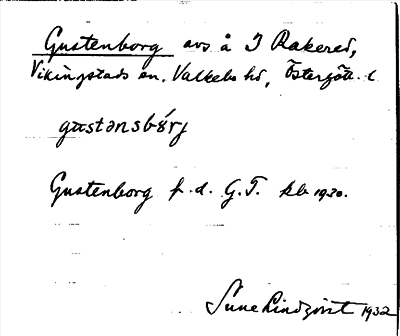 Gustenborg avs å I Rakered,
Vikingstads sn. Valkebo hd, Östergötl. l
gustənsbórj
Gustenborg f. d. G.T. kb 1930.
Sune Lindqvist 1932